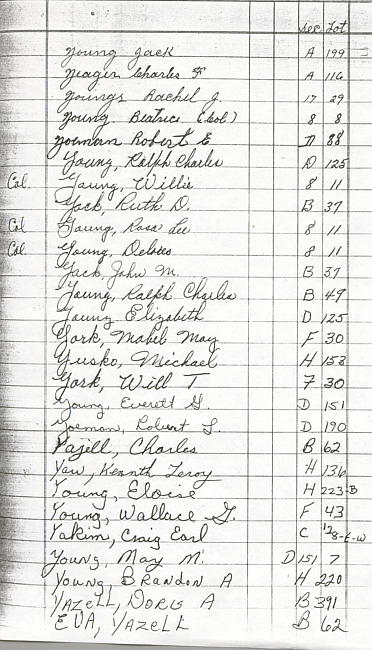 Sec. Lot
Young Jack A 199
Yeager Charles F A 116
Youngs Rachel J. 17 29
Young. Beatrice (Col.) 8 8
Yoeman Robert E. D 88
Young, Ralph Charles D 125
Col. Young, Willie 8 11
Yack, Ruth D. B 37
Col Young, Rosa Lee 8 11
Col. Young, Delores 8 11
Yack, John M. B 37
Young, Ralph Charles B 49
Young Elizabeth D 125
York, Mabel May F 30
Yusko, Michael H 153
York, Will T F 30
Young, Everett G. D 151
Yoeman, Robert L. D 190
Yazell, Charles B 62
Yaw, Kennth Leroy H 136
Young, Eloise H 223-B
Young, Wallace G. F 43
Yakim, Craig Earl C 128-E-W
Young, May M. D 151 7
Young, BRANDON A H 220
YAZELL, DORIS A B 391
EVA, YAZELL B 62